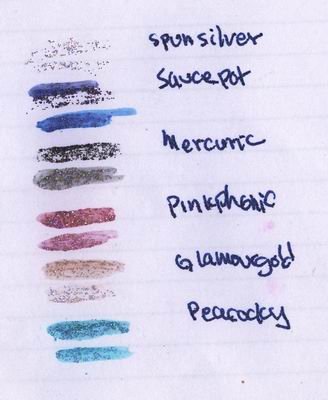 spunsilver
Saucepot
Mercuric
Pinkphonic
Glamourgold
Peacocky